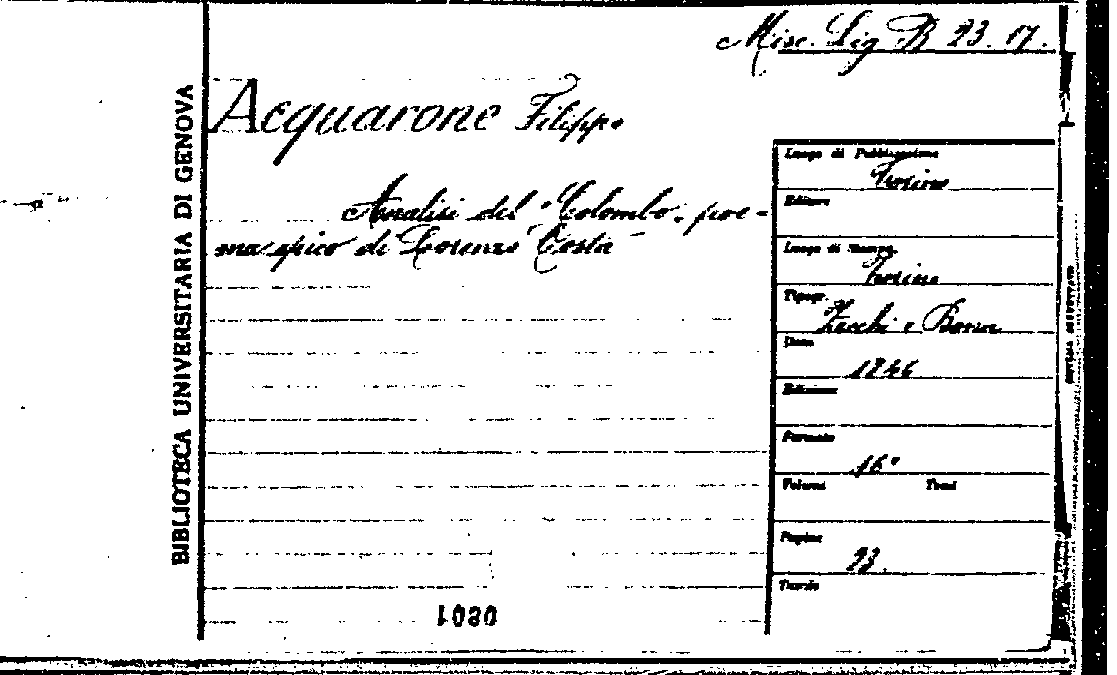 Misc. Lig. B 23. 17.
Acquarone Filippo
Analisi del "Colombo" poe-
ma epico di Lorenzo Costa -
BIBLIOTECA UNIVERSITARIA DI GENOVA
Luogo di Pubblicazione
Torino
Editore
Luogo di Stampa
Torino
Tipogr.
Zecchi e Bona
Data
1846
Edizione
Formato
16°
Volume Tomi
Pagine
23.
1080